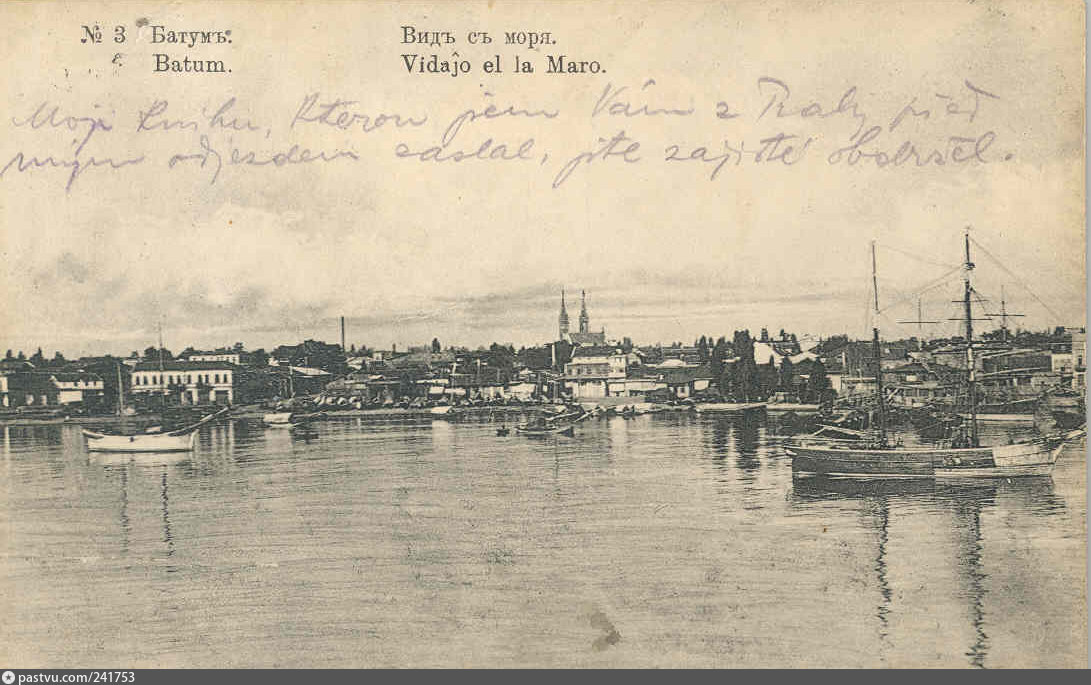 № 3 Батумъ. Видъ съ моря.
Batum. Vidaĵo el la Maro.
Moji knihu, kterou jsem Vám z Prahy před
mým odjezdem zaslal, jste zajisté obdržel.
pastvu.com/241753